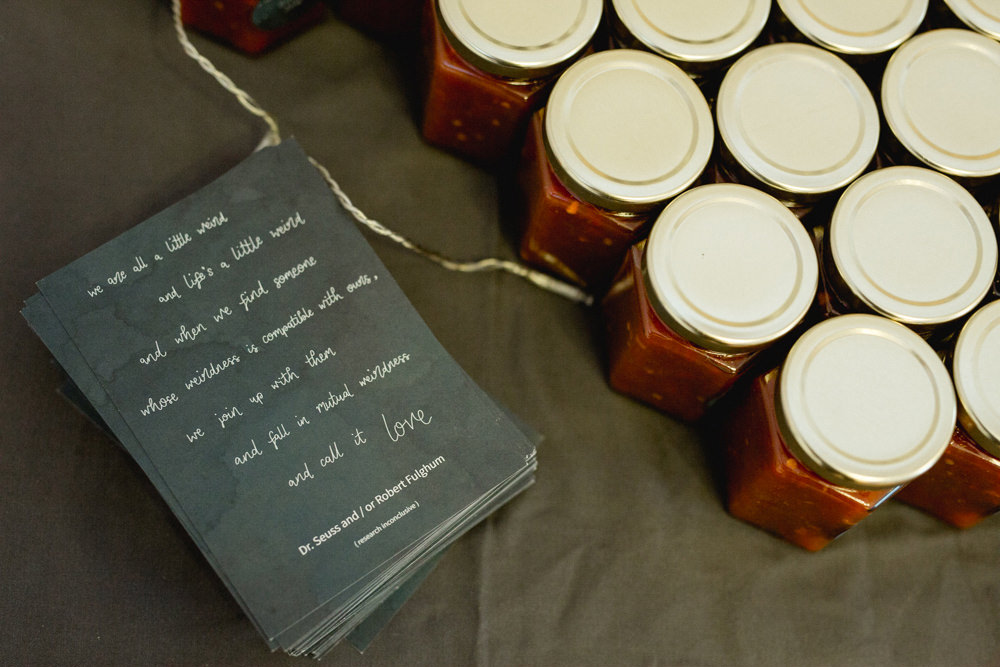 we are all a little weird
and life's a little weird
and when we find someone
whose weirdness is compatible with ours,
we join up with them
and fall in mutual weirdness
and call it love
Dr. Seuss and / or Robert Fulghum
( research inconclusive )